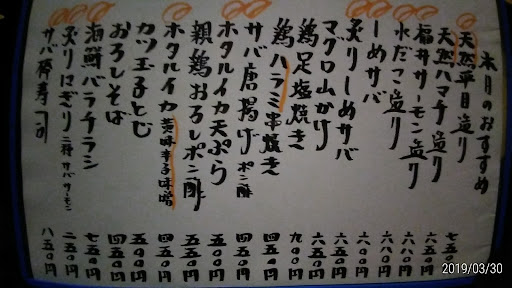 本日のおすすめ
天然平目造り 七五〇円
天然ハマチ造り 六五〇円
福井サーモン造り 六八〇円
水だこ造り 六八〇円
しめサバ 六〇〇円
炙りしめサバ 六五〇円
マグロ山かけ 六五〇円
鶏足塩焼き 九〇〇円
鶏ハラミ串焼き 四五〇円
サバ唐揚げ ポン酢 五五〇円
ホタルイカ天ぷら 五〇〇円
親鶏おろしポン酢 五五〇円
ホタルイカ 黄味辛子味噌 四五〇円
カツ玉子とじ 五五〇円
おろしそば 四五〇円
海鮮バラチラシ 七五〇円
炙りにぎり 二種 サバ サーモン 二五〇円
サバ棒寿司 八五〇円
2019/03/30